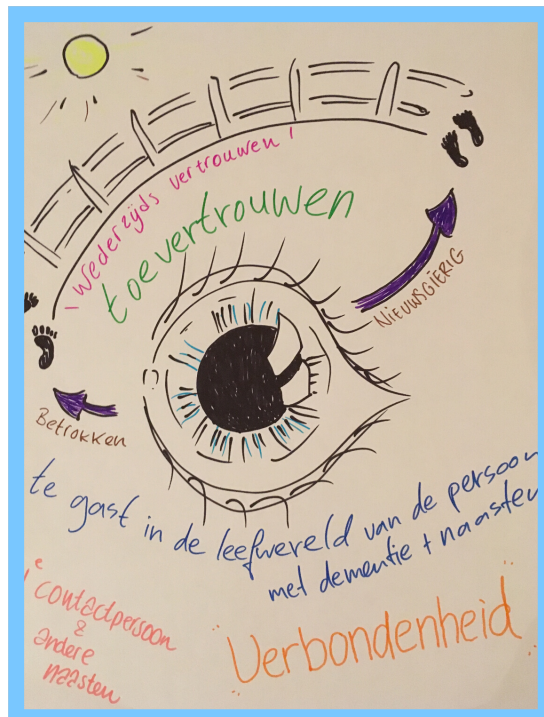 ! wederzijds vertrouwen !
toevertrouwen
NIEUWSGIERIG
Betrokken
te gast in de leefwereld van de persoon
met dementie + naasten
1e contactpersoon
&
andere
naasten
"Verbondenheid"